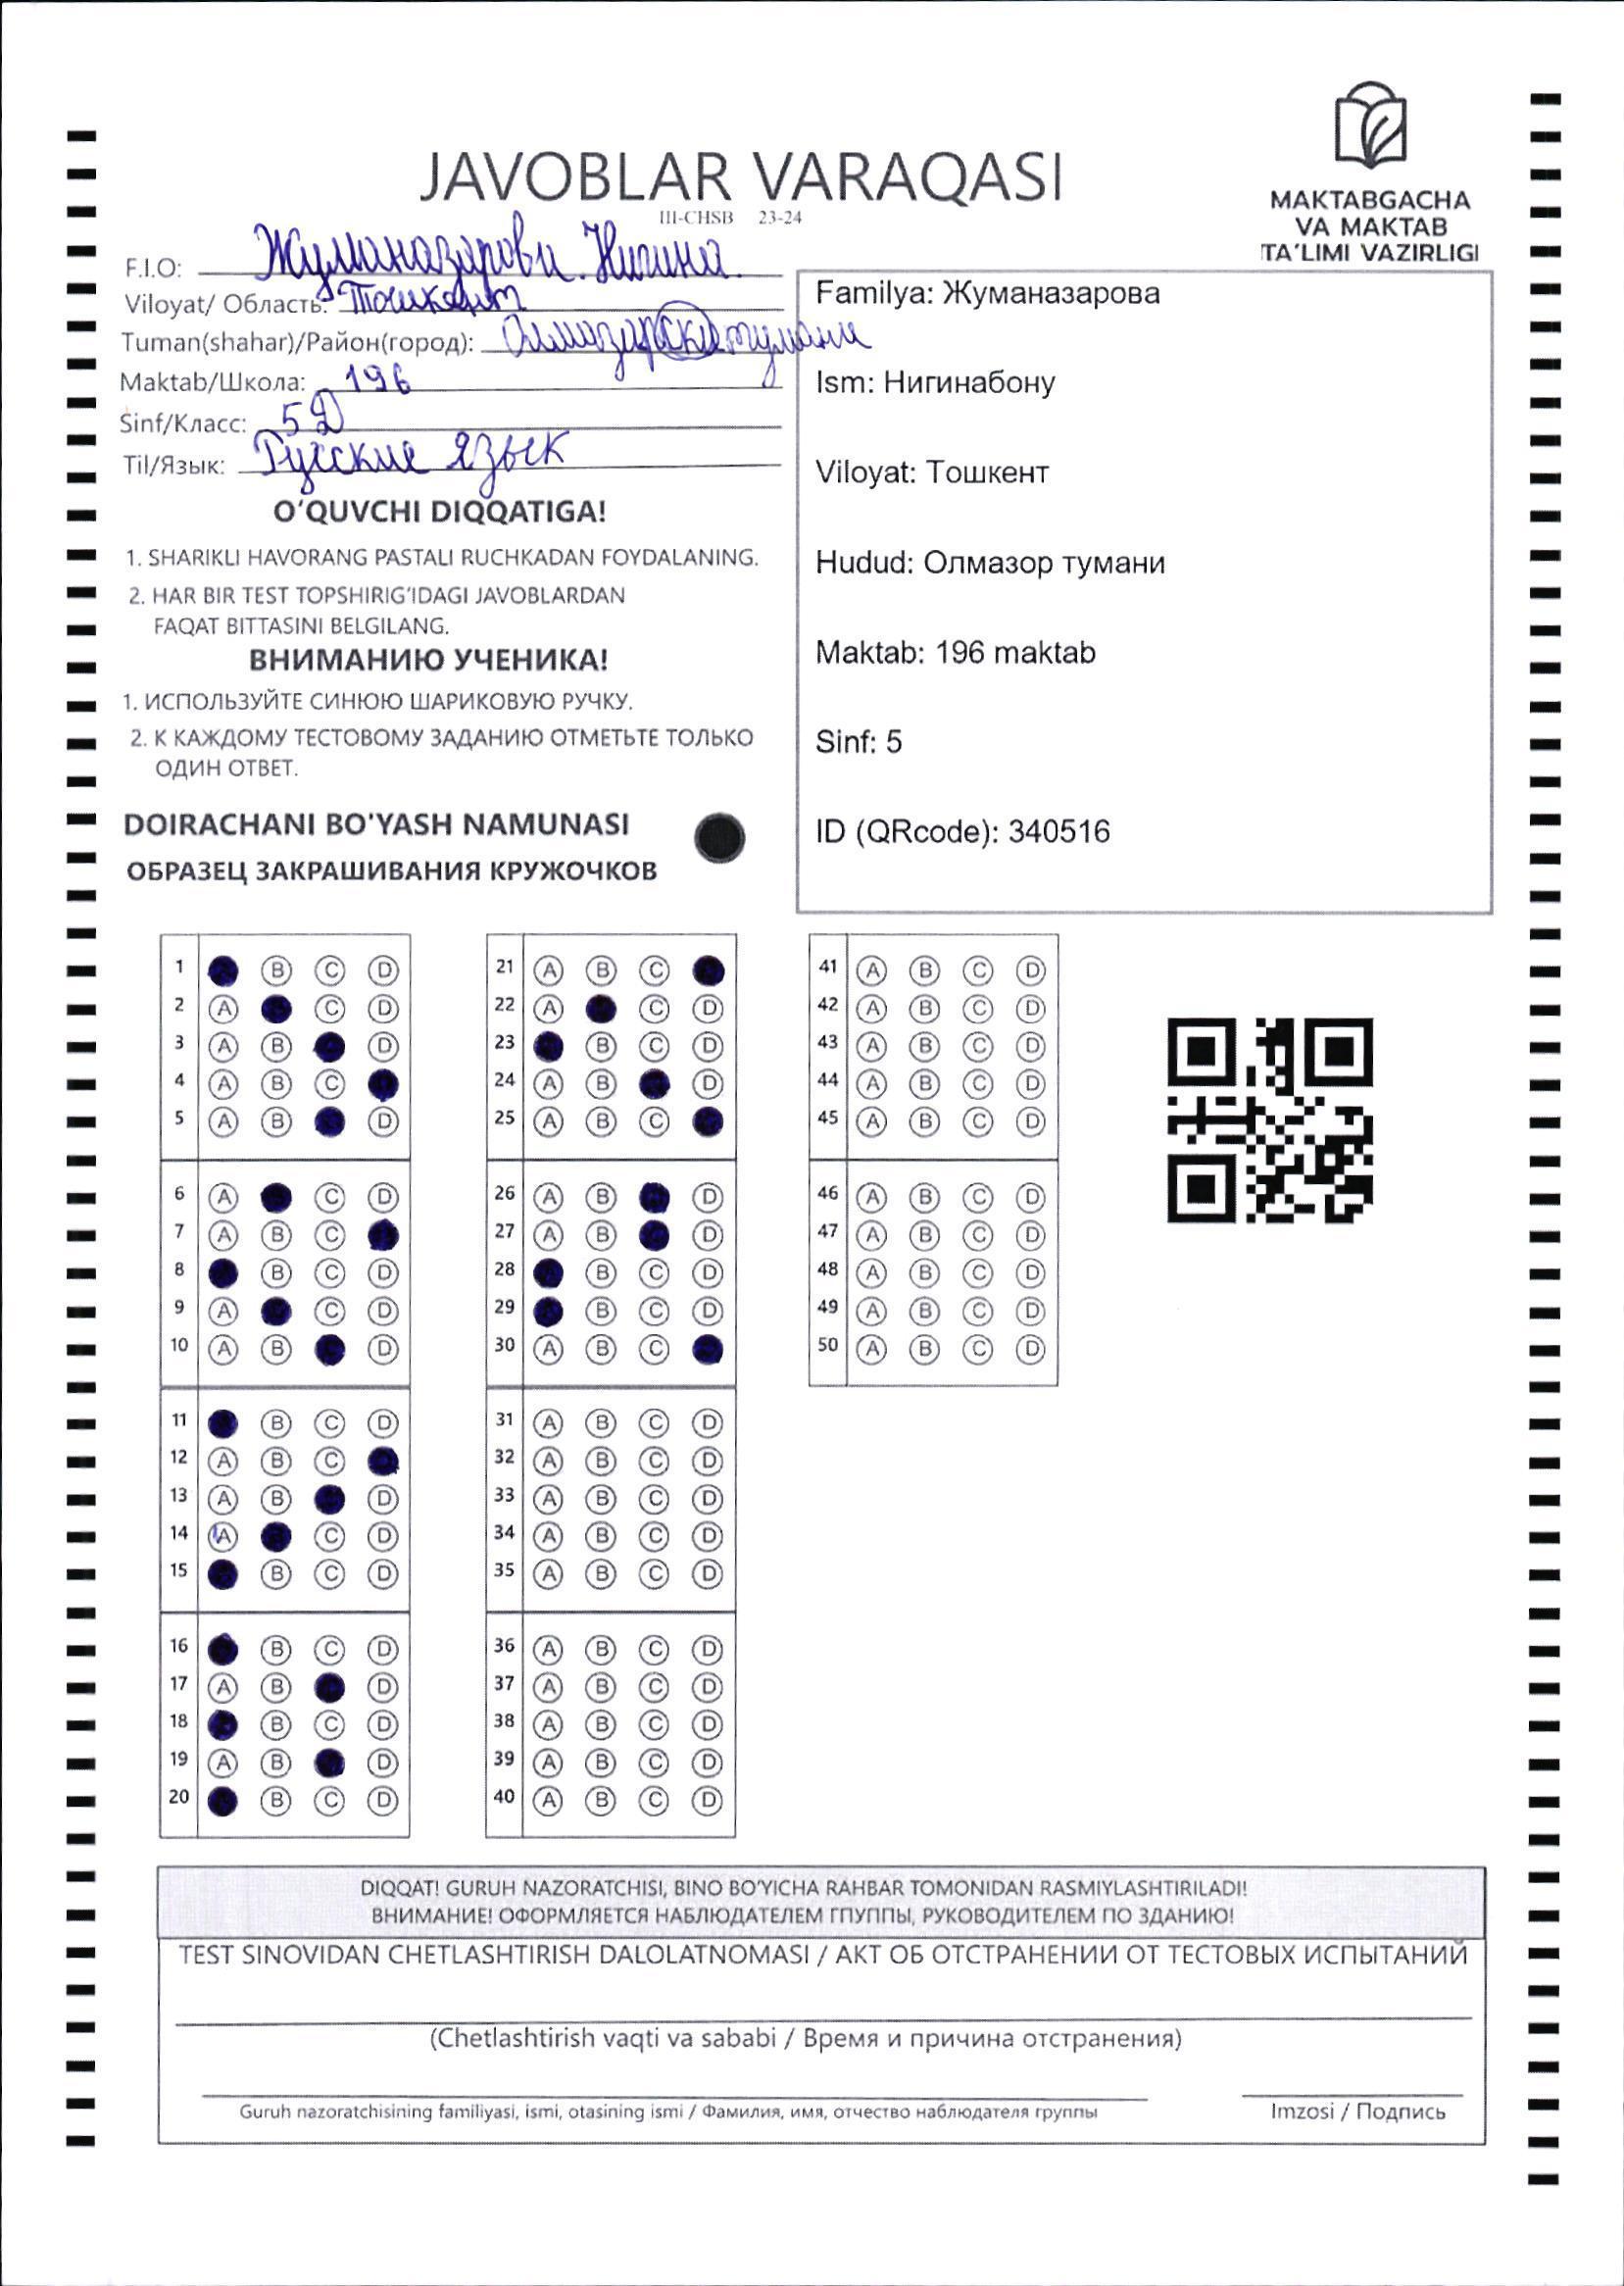 JAVOBLAR VARAQASI
III-CHSB 23-24
MAKTABGACHA
VA MAKTAB
TA'LIMI VAZIRLIGI
F.I.O: Жуманазарова. Нигина.
Viloyat/ Область: Тошкент
Tuman(shahar)/Район(город): тумани
Maktab/Школа: 196
Sinf/Класс: 5Д
Til/Язык: Русские язык
Familya: Жуманазарова
Ism: Нигинабону
Viloyat: Тошкент
Hudud: Олмазор тумани
Maktab: 196 maktab
Sinf: 5
ID (QRcode): 340516
O'QUVCHI DIQQATIGA!
1. SHARIKLI HAVORANG PASTALI RUCHKADAN FOYDALANING.
2. HAR BIR TEST TOPSHIRIG'IDAGI JAVOBLARDAN
FAQAT BITTASINI BELGILANG.
ВНИМАНИЮ УЧЕНИКА!
1. ИСПОЛЬЗУЙТЕ СИНЮЮ ШАРИКОВУЮ РУЧКУ.
2. К КАЖДОМУ ТЕСТОВОМУ ЗАДАНИЮ ОТМЕТЬТЕ ТОЛЬКО
ОДИН ОТВЕТ.
DOIRACHANI BO'YASH NAMUNASI
ОБРАЗЕЦ ЗАКРАШИВАНИЯ КРУЖОЧКОВ
1 B C D
2 A C D
3 A B D
4 A B C
5 A B D
6 A C D
7 A B C
8 B C D
9 A C D
10 A B D
11 B C D
12 A B C
13 A B D
14 A C D
15 B C D
16 B C D
17 A B D
18 B C D
19 A B D
20 B C D
21 A B C
22 A C D
23 B C D
24 A B D
25 A B C
26 A B D
27 A B D
28 B C D
29 B C D
30 A B C
31 A B C D
32 A B C D
33 A B C D
34 A B C D
35 A B C D
36 A B C D
37 A B C D
38 A B C D
39 A B C D
40 A B C D
41 A B C D
42 A B C D
43 A B C D
44 A B C D
45 A B C D
46 A B C D
47 A B C D
48 A B C D
49 A B C D
50 A B C D
DIQQAT! GURUH NAZORATCHISI, BINO BO'YICHA RAHBAR TOMONIDAN RASMIYLASHTIRILADI!
ВНИМАНИЕ! ОФОРМЛЯЕТСЯ НАБЛЮДАТЕЛЕМ ГПУППЫ, РУКОВОДИТЕЛЕМ ПО ЗДАНИЮ!
TEST SINOVIDAN CHETLASHTIRISH DALOLATNOMASI / АКТ ОБ ОТСТРАНЕНИИ ОТ ТЕСТОВЫХ ИСПЫТАНИЙ
(Chetlashtirish vaqti va sababi / Время и причина отстранения)
Guruh nazoratchisining familiyasi, ismi, otasining ismi / Фамилия, имя, отчество наблюдателя группы
Imzosi / Подпись